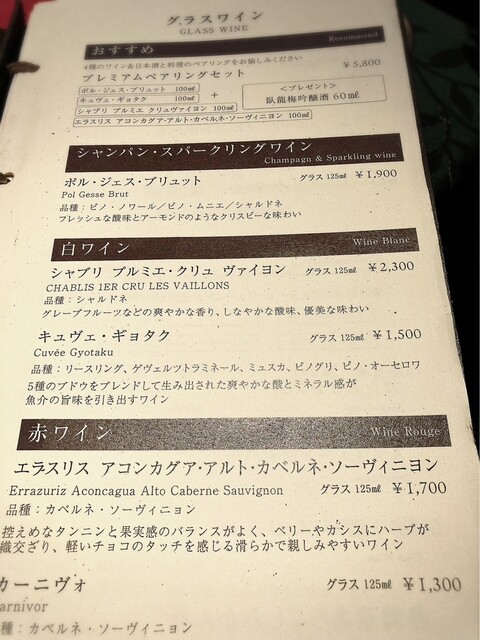 グラスワイン
GLASS WINE
おすすめ Recommend
4種のワイン&日本酒と料理のペアリングをお愉しみください
プレミアムペアリングセット ¥5,800
ポル・ジェス・ブリュット 100㎖
キュヴェ・ギョタク 100㎖
シャブリ プルミエ クリュヴァイヨン 100㎖
エラスリス アコンカグア・アルト・カベルネ・ソーヴィニヨン 100㎖
+
<プレゼント>
臥龍梅吟醸酒 60㎖
シャンパン・スパークリングワイン
Champagn & Sparkling wine
ポル・ジェス・ブリュット グラス125㎖ ¥1,900
Pol Gesse Brut
品種:ピノ・ノワール/ピノ・ムニエ/シャルドネ
フレッシュな酸味とアーモンドのようなクリスピーな味わい
白ワイン Wine Blanc
シャブリ プルミエ・クリュ ヴァイヨン グラス125㎖ ¥2,300
CHABLIS 1ER CRU LES VAILLONS
品種:シャルドネ
グレープフルーツなどの爽やかな香り、しなやかな酸味、優美な味わい
キュヴェ・ギョタク グラス125㎖ ¥1,500
Cuvée Gyotaku
品種:リースリング、ゲヴェルツトラミネール、ミュスカ、ピノグリ、ピノ・オーセロワ
5種のブドウをブレンドして生み出された爽やかな酸とミネラル感が
魚介の旨味を引き出すワイン
赤ワイン Wine Rouge
エラスリス アコンカグア・アルト・カベルネ・ソーヴィニヨン
Errazuriz Aconcagua Alto Caberne Sauvignon グラス125㎖ ¥1,700
品種:カベルネ・ソーヴィニョン
控えめなタンニンと果実感のバランスがよく、ベリーやカシスにハーブが
織交ざり、軽いチョコのタッチを感じる滑らかで親しみやすいワイン
カーニヴォ グラス125㎖ ¥1,300
arnivor
種:カベルネ・ソーヴィニヨン